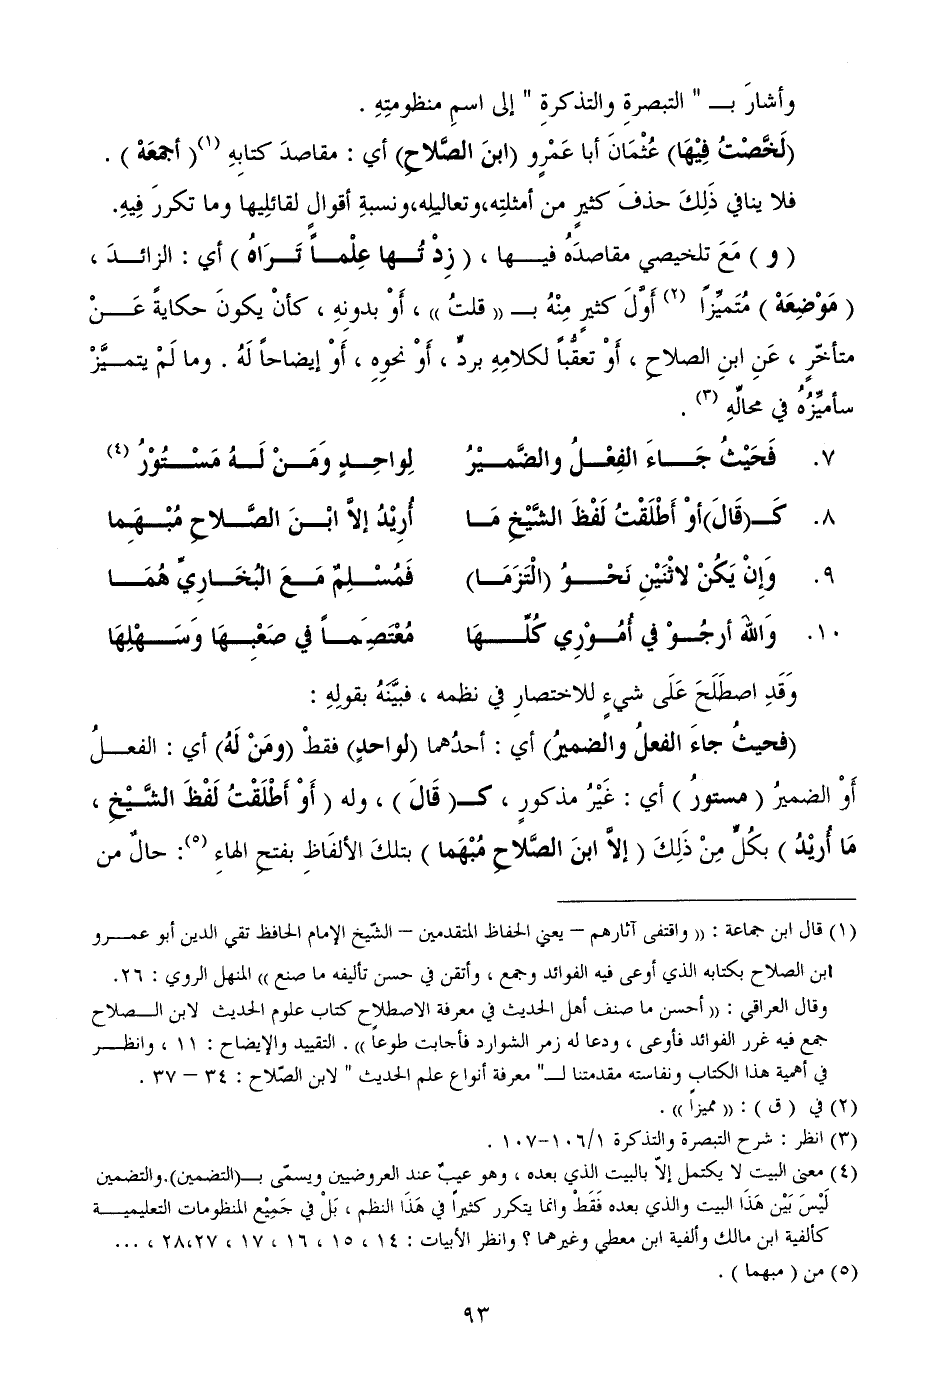 وأشارَ بـ " التبصرة والتذكرةِ " إلى اسمِ منظومتِهِ .
(لَخَّصْتُ فِيْهَا) عُثْمَانَ أبا عَمْرٍو (ابنَ الصَّلاحِ) أي : مقاصدَ كتابِهِ (١)( أجمعَهْ ) .
فلا ينافي ذَلِكَ حذفَ كثيرٍ من أمثلتِه،وتعاليلِه،ونسبةِ أقوالٍ لقائليها وما تكررَ فِيهِ.
( و ) مَعَ تلخيصي مقاصدَهُ فيها ، ( زِدْتُها عِلْماً تَراهُ ) أي : الزائدَ ،
( مَوْضِعَهْ ) مُتَميِّزاً (٢) أوَّلَ كثيرٍ مِنْهُ بـ (( قلتُ )) ، أَوْ بدونهِ ، كأنْ يكونَ حكايةً عَنْ
متأخّرٍ ، عَنِ ابنِ الصلاحِ ، أَوْ تعقُّباً لكلامِهِ بردٍّ ، أَوْ نحوِهِ ، أَوْ إيضاحاً لَهُ . وما لَمْ يتميَّزْ
سأميِّزُهُ في محالِّهِ (٣) .
٧. فَحَيْثُ جَاءَ الفِعْلُ والضَّميْرُ لِواحِدٍ ومَنْ لَهُ مَسْتُوْرُ (٤)
٨. كَـ(قَالَ)أوْ أطْلَقْتُ لَفْظَ الشَّيْخِ مَا أُرِيْدُ إلاَّ ابْنَ الصَّلاحِ مُبْهَما
٩. وَإنْ يَكُنْ لاثْنَيْنِ نَحْوُ (الْتَزَمَا) فَمُسْلِمٌ مَعَ البُخَارِيِّ هُمَا
١٠. وَاللهَ أرجُوْ في أُمُوْرِي كُلِّهَا مُعْتَصَماً في صَعْبِهَا وَسَهْلِهَا
وَقَدِ اصطَلَحَ عَلَى شيءٍ للاختصارِ في نظمه ، فبيَّنَهُ بقولِهِ :
(فحيثُ جاءَ الفعلُ والضميرُ) أي : أحدُهما (لواحدٍ) فقطْ (ومَنْ لَهُ) أي : الفعلُ
أَوْ الضميرُ ( مستورُ ) أي : غَيْرُ مذكورٍ ، كـ( قَالَ ) ، وله ( أَوْ أَطْلَقْتُ لَفْظَ الشَّيْخِ ،
مَا أُرِيْدُ ) بكُلٍّ مِنْ ذَلِكَ ( إلاَّ ابنَ الصَّلاحِ مُبْهَما ) بتلكَ الألفاظِ بفتحِ الهاءِ (٥): حالٌ من
(١) قال ابن جماعة : (( واقتفى آثارهم – يعني الحفاظ المتقدمين – الشّيخ الإمام الحافظ تقي الدين أبو عمرو
ابن الصلاح بكتابه الذي أوعى فيه الفوائد وجمع ، وأتقن في حسن تأليفه ما صنع )) المنهل الروي : ٢٦.
وقال العراقي : (( أحسن ما صنف أهل الحديث في معرفة الاصطلاح كتاب علوم الحديث لابن الصلاح
جمع فيه غرر الفوائد فأوعى ، ودعا له زمر الشوارد فأجابت طوعاً )) . التقييد والإيضاح : ١١ ، وانظر
في أهمية هذا الكتاب ونفاسته مقدمتنا لـ" معرفة أنواع علم الحديث " لابن الصّلاح : ٣٤ – ٣٧ .
(٢) في ( ق ) : (( مميزاً )) .
(٣) انظر : شرح التبصرة والتذكرة ١/‏١٠٦-١٠٧ .
(٤) معنى البيت لا يكتمل إلاّ بالبيت الذي بعده ، وهو عيبٌ عند العروضيين ويسمّى بـ(التضمين).والتضمين
لَيْسَ بَيْن هَذَا البيت والذي بعده فَقَطْ وانما يتكرر كثيراً في هَذَا النظم ، بَلْ في جَمِيْع المنظومات التعليمية
كألفية ابن مالك وألفية ابن معطي وغيرهما ؟ وانظر الأبيات : ١٤ ، ١٥ ، ١٦ ، ١٧ ، ٢٨،٢٧ ، ...
(٥) من ( مبهما ) .
٩٣